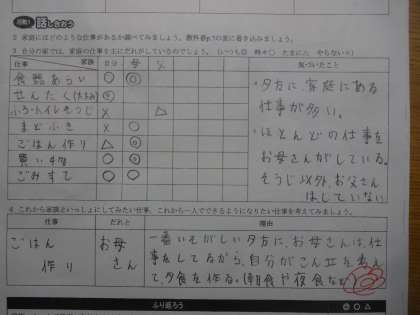 活動1 話し合おう
2 家庭にはどのような仕事があるか調べてみましょう。教科書p.7の表に書き込みましょう。
3 自分の家では、家庭の仕事を主にだれがしているのでしょう。(いつも◎ 時々○ たまに△ やらない×)
仕事 家族 自分 母 父 気づいたこと
食器あらい ◎ ◎
せんたく ◎
ふろ・トイレそうじ × △
まどふき × ◎
ごはん作り △ ◎
買い物 ○ ◎
ごみすて ○ ○
・夕方に、家庭にある
仕事が多い。
・ほとんどの仕事を
お母さんがしている。
そうじ以外、お父さん
はしていない。
4 これから家族といっしょにしてみたい仕事、これから一人でできるようになりたい仕事を考えてみましょう。
仕事 だれと 理由
ごはん
作り
お母
さん
一番いそがしい夕方に、お母さんは、仕
事をしてるから、自分がこん立を考え
て、夕食を作る。(朝食や夜食など)
ふり返ろう
◎ ○ △